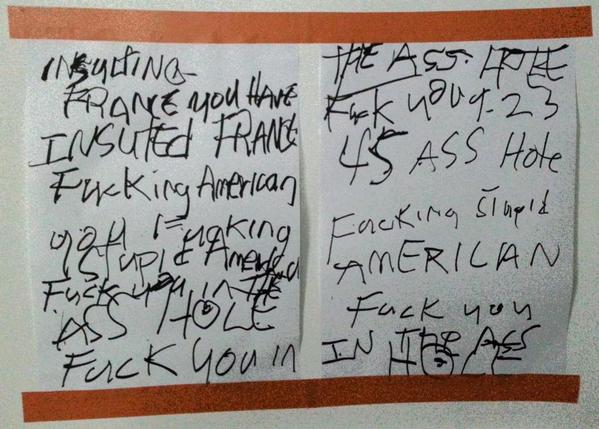 INSULTING
FRANCE YOU HAVE
INSUTED FRANCE
Fucking American
you Fucking
Stupid American
Fuck you in THE
ASS HOLE
FUCK YOU in
THE ASS HOLE
Fuck you 9-23
45 ASS Hole
Fucking Stupid
AMERICAN
Fuck you
IN THE ASS
HOLE